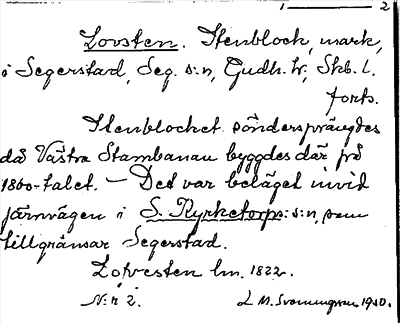 1 — 2
Lovsten. Stenblock, mark,
i Segerstad, Seg. s:n, Gudh. hr, Skb. l.
forts.
Stenblocket söndersprängdes
då Västra Stambanan byggdes där på
1800-talet. — Det var beläget invid
järnvägen i S. Kyrketorps s:n, som
tillgränsar Segerstad.
Lofvesten lm. 1822.
N:r 2. L M. Svenungsson 1940.